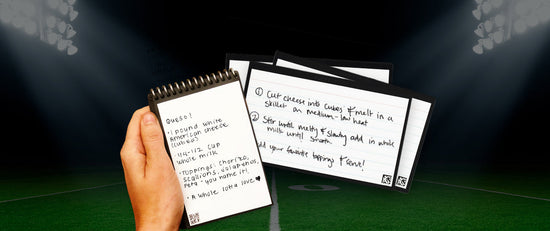 Queso!
• 1 pound white
American cheese
(cubed)
• 1/4-1/2 cup
whole milk
• Toppings: Chorizo,
scallions, jalapeños,
feta - you name it!
• A whole lotta love ♥
① Cut cheese into cubes & melt in a
skillet on medium-low heat
② Stir until melty & slowly add in whole
milk until smooth
Add your favorite toppings & serve!